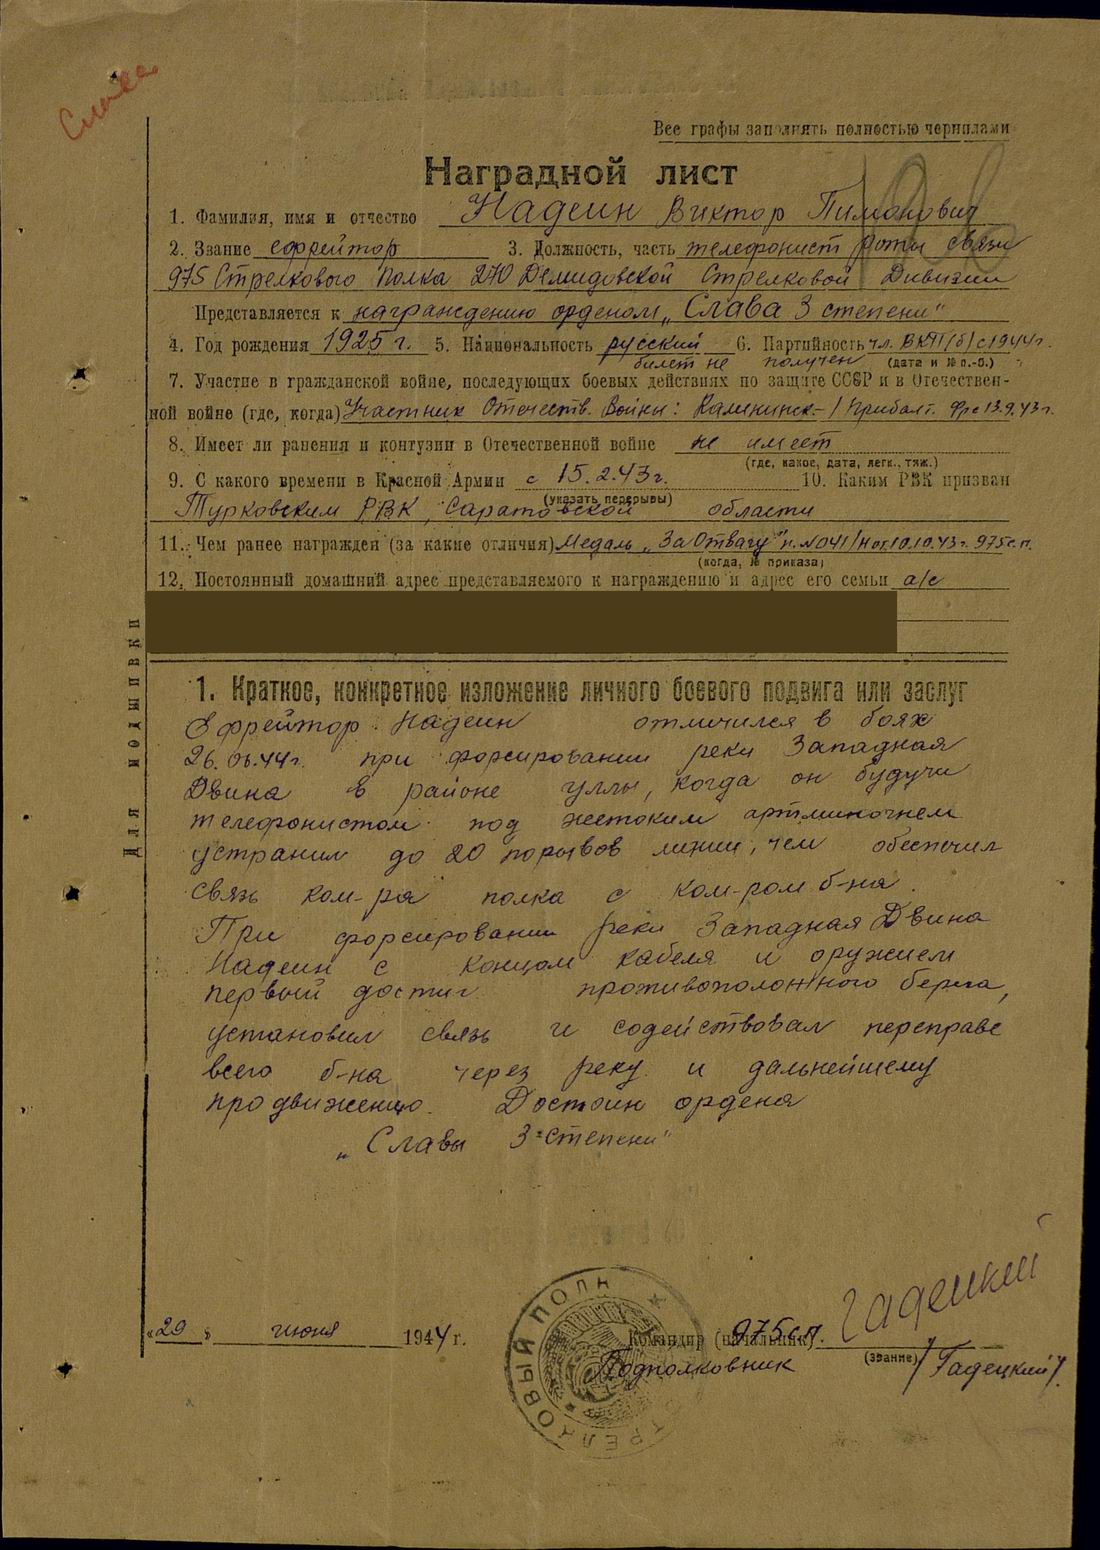 Слава
Все графы заполнять полностью чернилами
Наградной лист
1. Фамилия, имя и отчество Надеин Виктор Пимонович
2. Звание ефрейтор 3. Должность, часть телефонист роты связи
975 Стрелкового полка 270 Демидовской Стрелковой Дивизии
Представляется к награждению орденом „Слава 3 степени"
4. Год рождения 1925 г. 5. Национальность русский 6. Партийность чл. ВКП(б) с 1944 г.
билет не получен (дата и № п.-б.)
7. Участие в гражданской войне, последующих боевых действиях по защите СССР и в Отечествен-
ной войне (где, когда) Участник Отечеств. Войны: Калининск.-/Прибалт. Фр с 13.9.43 г.
8. Имеет ли ранения и контузии в Отечественной войне не имеет
(где, какое, дата, легк., тяж.)
9. С какого времени в Красной Армии с 15.2.43 г. 10. Каким РВК призван
(указать перерывы)
Турковским РВК, Саратовской области
11. Чем ранее награжден (за какие отличия) Медаль „За Отвагу" п. №041/н от 10.10.43 г. 975 с.п.
(когда, № приказа)
12. Постоянный домашний адрес представляемого к награждению и адрес его семьи а/с
Для подшивки
1. Краткое, конкретное изложение личного боевого подвига или заслуг
Ефрейтор Надеин отличился в боях
26.06.44г. при форсировании реки Западная
Двина в районе Уллы, когда он будучи
телефонистом под жестоким артминогнем
устранил до 20 порывов линии, чем обеспечил
связь ком-ра полка с ком-ром б-на.
При форсировании реки Западная Двина
Надеин с концом кабеля и оружием
первый достиг противоположного берега,
установил связь и содействовал переправе
всего б-на через реку и дальнейшему
продвижению. Достоин ордена
„Славы 3 степени"
„29" июня 1944 г.
СТРЕЛКОВЫЙ ПОЛК
Командир (начальник) 975 сп. Гадецкий
Подполковник (звание) /Гадецкий/.